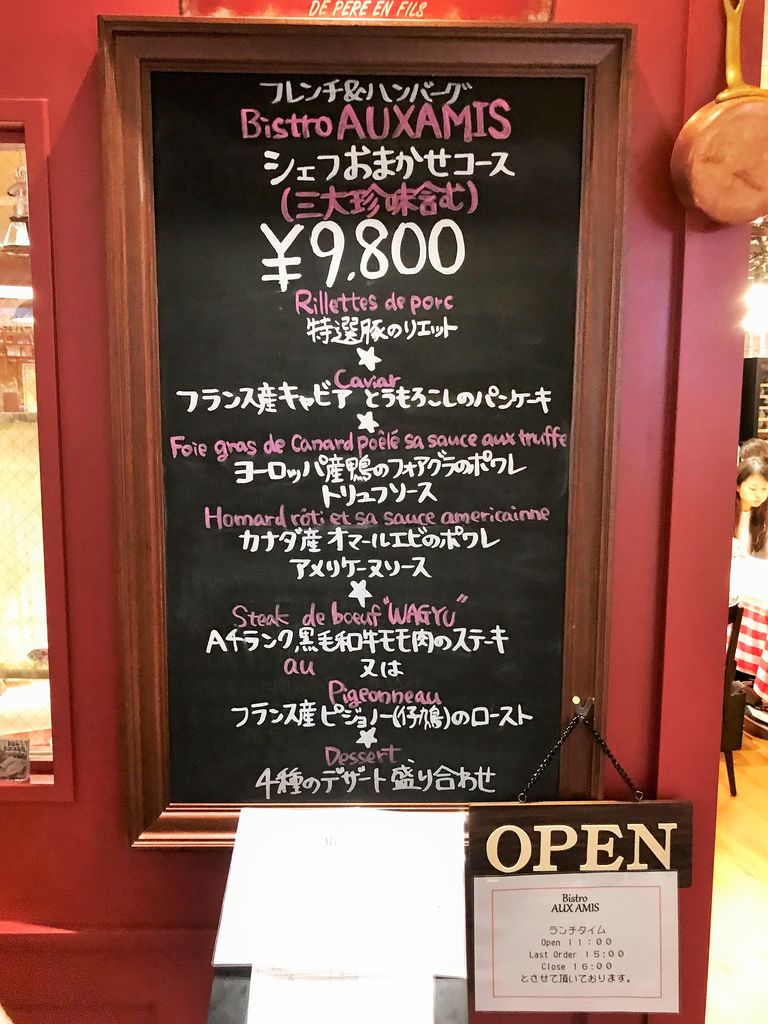 DE PERE EN FILS
フレンチ&ハンバーグ
Bistro AUXAMIS
シェフおまかせコース
(三大珍味含む)
¥9,800
Rillettes de porc
特選豚のリエット
Caviar
フランス産キャビア とうもろこしのパンケーキ
Foie gras de Canard poêlé sa sauce aux truffe
ヨーロッパ産鴨のフォアグラのポワレ
トリュフソース
Homard rôti et sa sauce americainne
カナダ産 オマールエビのポワレ
アメリケーヌソース
Steak de boeuf "WAGYU"
A4ランク,黒毛和牛モモ肉のステーキ
au 又は
Pigeonneau
フランス産ピジョノー(仔鳩)のロースト
Dessert
4種のデザート盛り合わせ
OPEN
Bistro
AUX AMIS
ランチタイム
Open 11:00
Last Order 15:00
Close 16:00
とさせて頂いております。